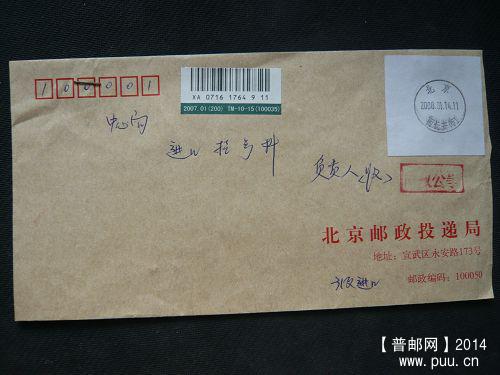 100001
XA 0716 1764 9 11
2007.01(200) TM-10-15(100035)
北京
2008.01.14.11
中心局
进口挂号科
负责人(收)
公
北京邮政投递局
地址：宣武区永安路173号
邮政编码：100050
进口
【普邮网】2014
www.puu.cn